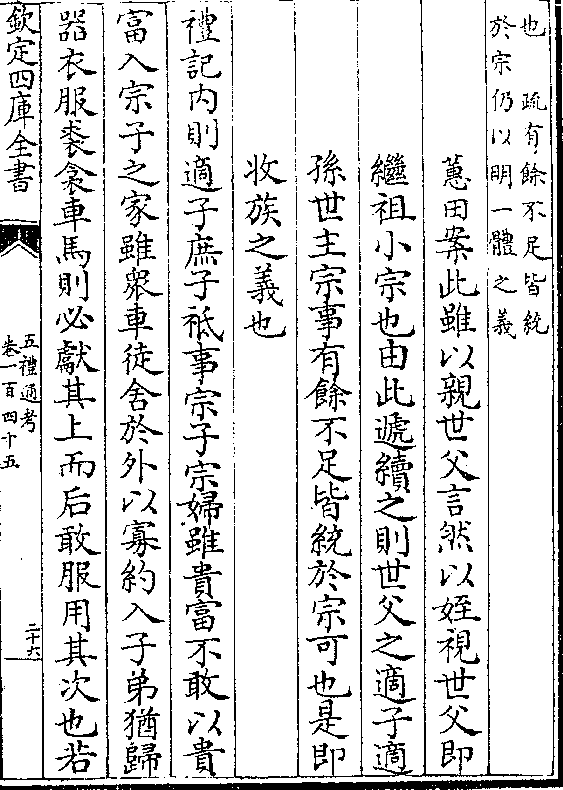 也　疏有餘不足皆統
於宗仍以明一體之義
蕙田案此雖以親世父言然以姪視世父即
繼祖小宗也由此遞續之則世父之適子適
孫世主宗事有餘不足皆統於宗可也是即
收族之義也
禮記内則適子庶子祗事宗子宗婦雖貴富不敢以貴
富入宗子之家雖衆車徒舍於外以寡約入子弟猶歸
器衣服裘衾車馬則必獻其上而后敢服用其次也若
欽定四庫全書
五禮通考
卷一百四十五
二十六